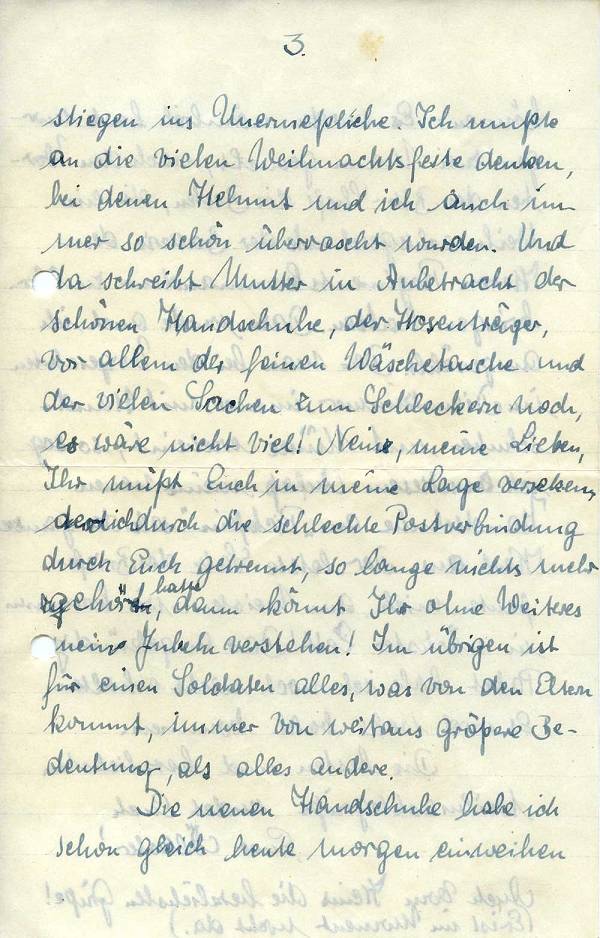 3.
stiegen ins Unermeßliche. Ich mußte
an die vielen Weihnachtsfeste denken,
bei denen Helmut und ich auch im-
mer so schön überrascht wurden. Und
da schreibt Mutter in Anbetracht der
schönen Handschuhe, der Hosenträger,
vor allem der feinen Wäschetasche und
der vielen Sachen zum Schleckern noch,
es wäre nicht viel! Nein, meine Lieben,
Ihr müßt Euch in meine Lage versetzen,
der ich durch die schlechte Postverbindung
durch Euch getrennt, so lange nichts mehr
gehört hatte, dann könnt Ihr ohne Weiteres
mein Jubeln verstehen! Im übrigen ist
für einen Soldaten alles, was von den Eltern
kommt, immer von weitaus größere Be-
deutung, als alles andere.
Die neuen Handschuhe habe ich
schon gleich heute morgen einweihen